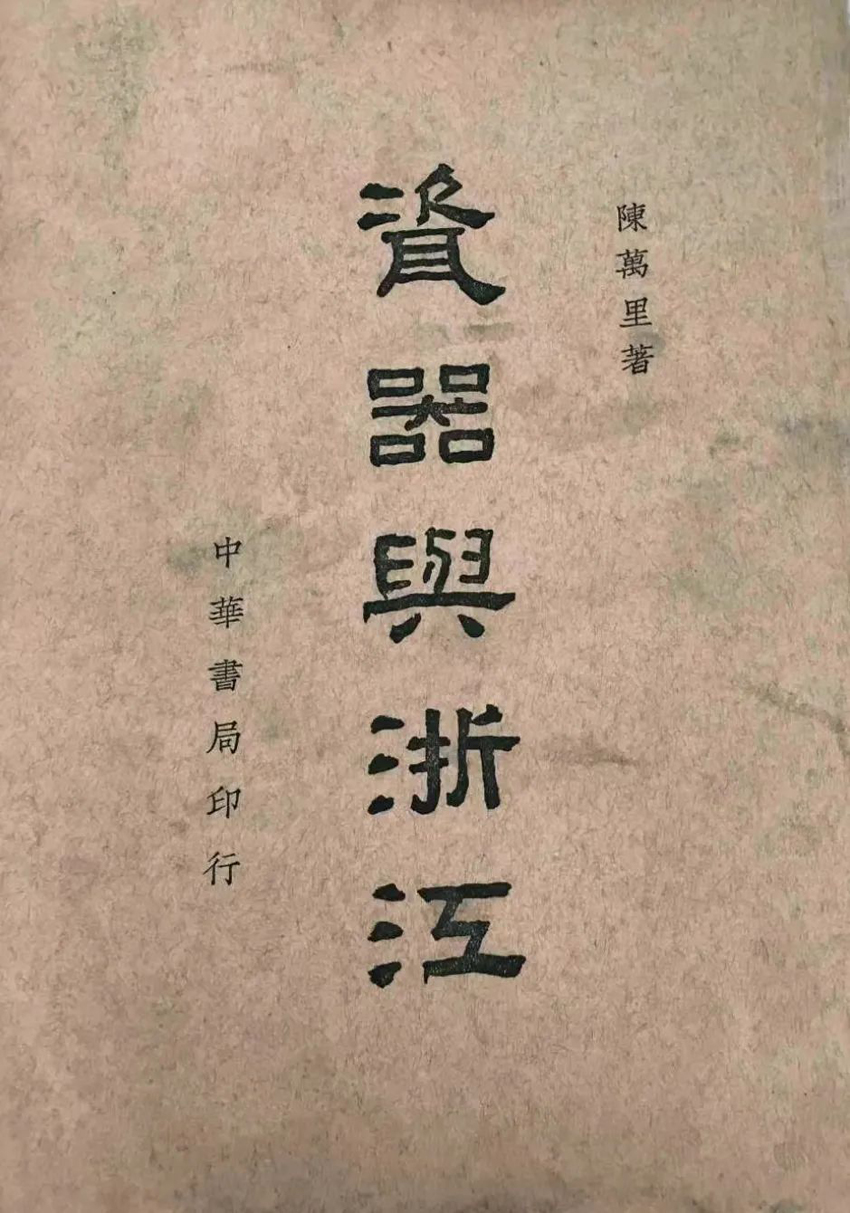 陳萬里著
瓷器與浙江
中華書局印行